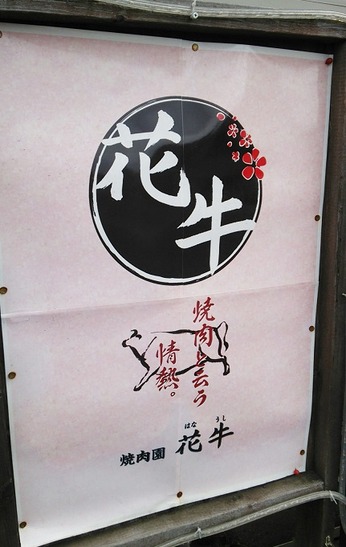 花牛
焼肉と云う
情熱。
はな うし
焼肉園 花牛